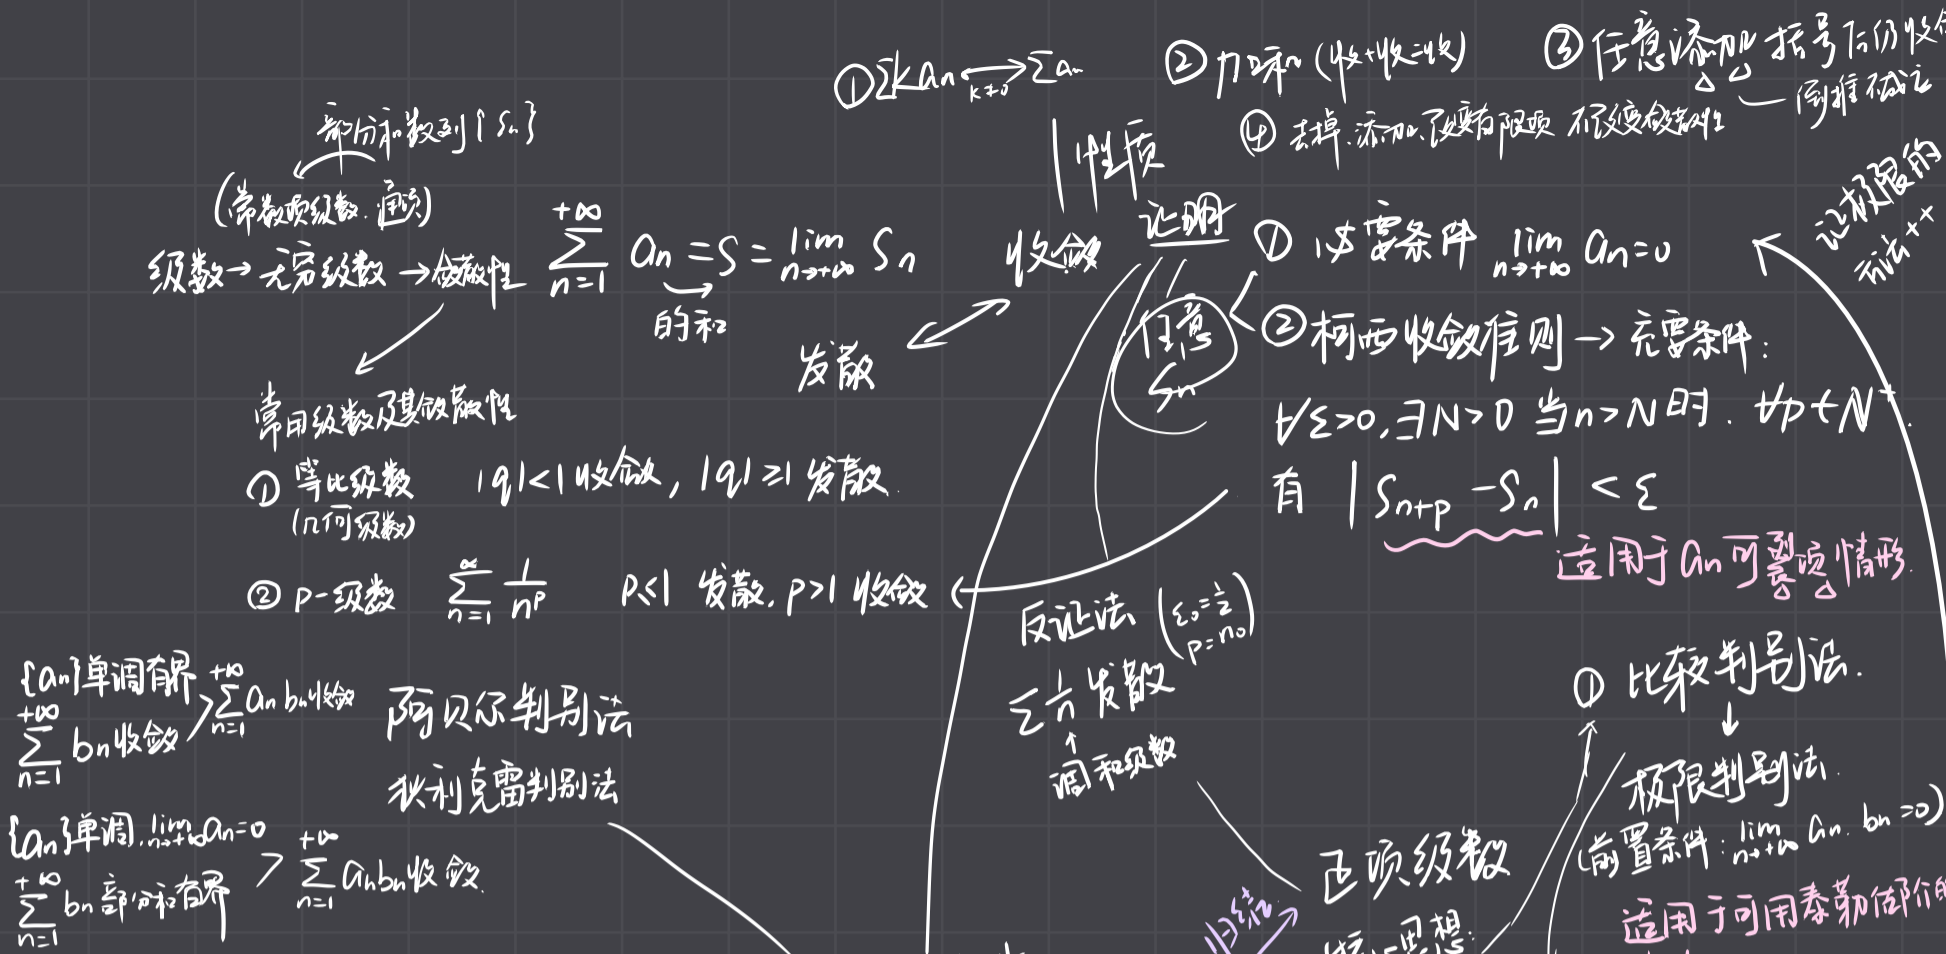 ① Σkan ⟷ Σan
k≠0
② 加和 (收+收=收)
③ 任意添加括号后仍收
倒推不成立
④ 去掉、添加、改变有限项 不改变敛散性
性质
部分和数列{Sn}
(常数项级数. 通项)
级数→无穷级数→敛散性
+∞
Σ an = S = lim Sn
n=1 n→+∞
的和
收敛
发散
证明
① 必要条件 lim an=0
n→+∞
让极限的
方法++
任意
Sn
② 柯西收敛准则 → 充要条件:
∀ε>0,∃N>0 当n>N时. ∀p∈N⁺.
有 |Sn+p -Sn| < ε
适用于an可裂项情形.
常用级数及其敛散性
① 等比级数 |q|<1收敛, |q|≥1 发散.
(几何级数)
② p-级数 ∞Σn=1 1/nᵖ p≤1 发散, p>1 收敛
反证法 (ε₀=1/2
p=n₀)
Σ1/n 发散
↑
调和级数
{an}单调有界
+∞Σn=1 bn收敛
> +∞Σn=1 anbn收敛
阿贝尔判别法
狄利克雷判别法
{an}单调, lim n→+∞ an=0
+∞Σn=1 bn部分和有界
> +∞Σn=1 anbn收敛.
① 比较判别法.
↓
极限判别法.
(前置条件: lim n→+∞ an. bn=0)
适用于可用泰勒
正项级数
归结
思想: